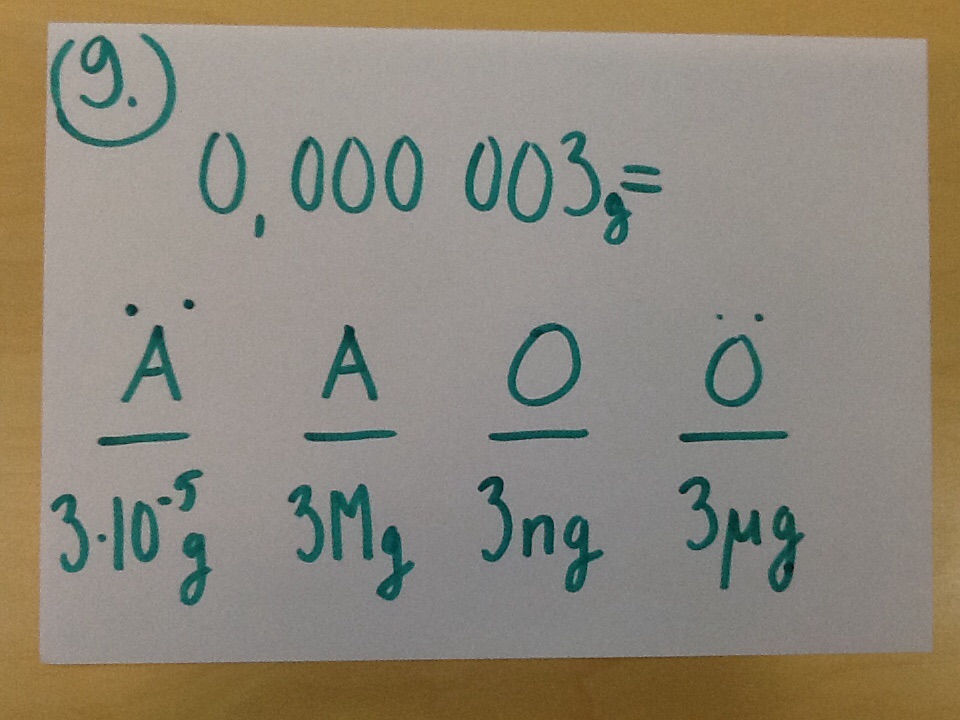 9.
0,000 003g=
Ä A O Ö
3·10⁻⁵g 3Mg 3ng 3µg